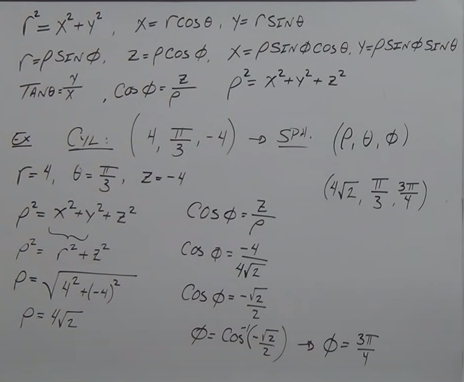 r² = x² + y² , x = r cosθ , y = r sinθ
r = ρ sinϕ , z = ρ cosϕ , x = ρ sinϕ cosθ , y = ρ sinϕ sinθ
Tanθ = y/x , Cosϕ = z/ρ ρ² = x² + y² + z²
Ex Cyl: (4, π/3, -4) → Sph. (ρ, θ, ϕ)
r = 4, θ = π/3, z = -4
(4√2, π/3, 3π/4)
ρ² = x² + y² + z²
ρ² = r² + z²
ρ = √(4² + (-4)²)
ρ = 4√2
Cosϕ = z/ρ
Cosϕ = -4/4√2
Cosϕ = -√2/2
ϕ = Cos⁻¹(-√2/2) → ϕ = 3π/4